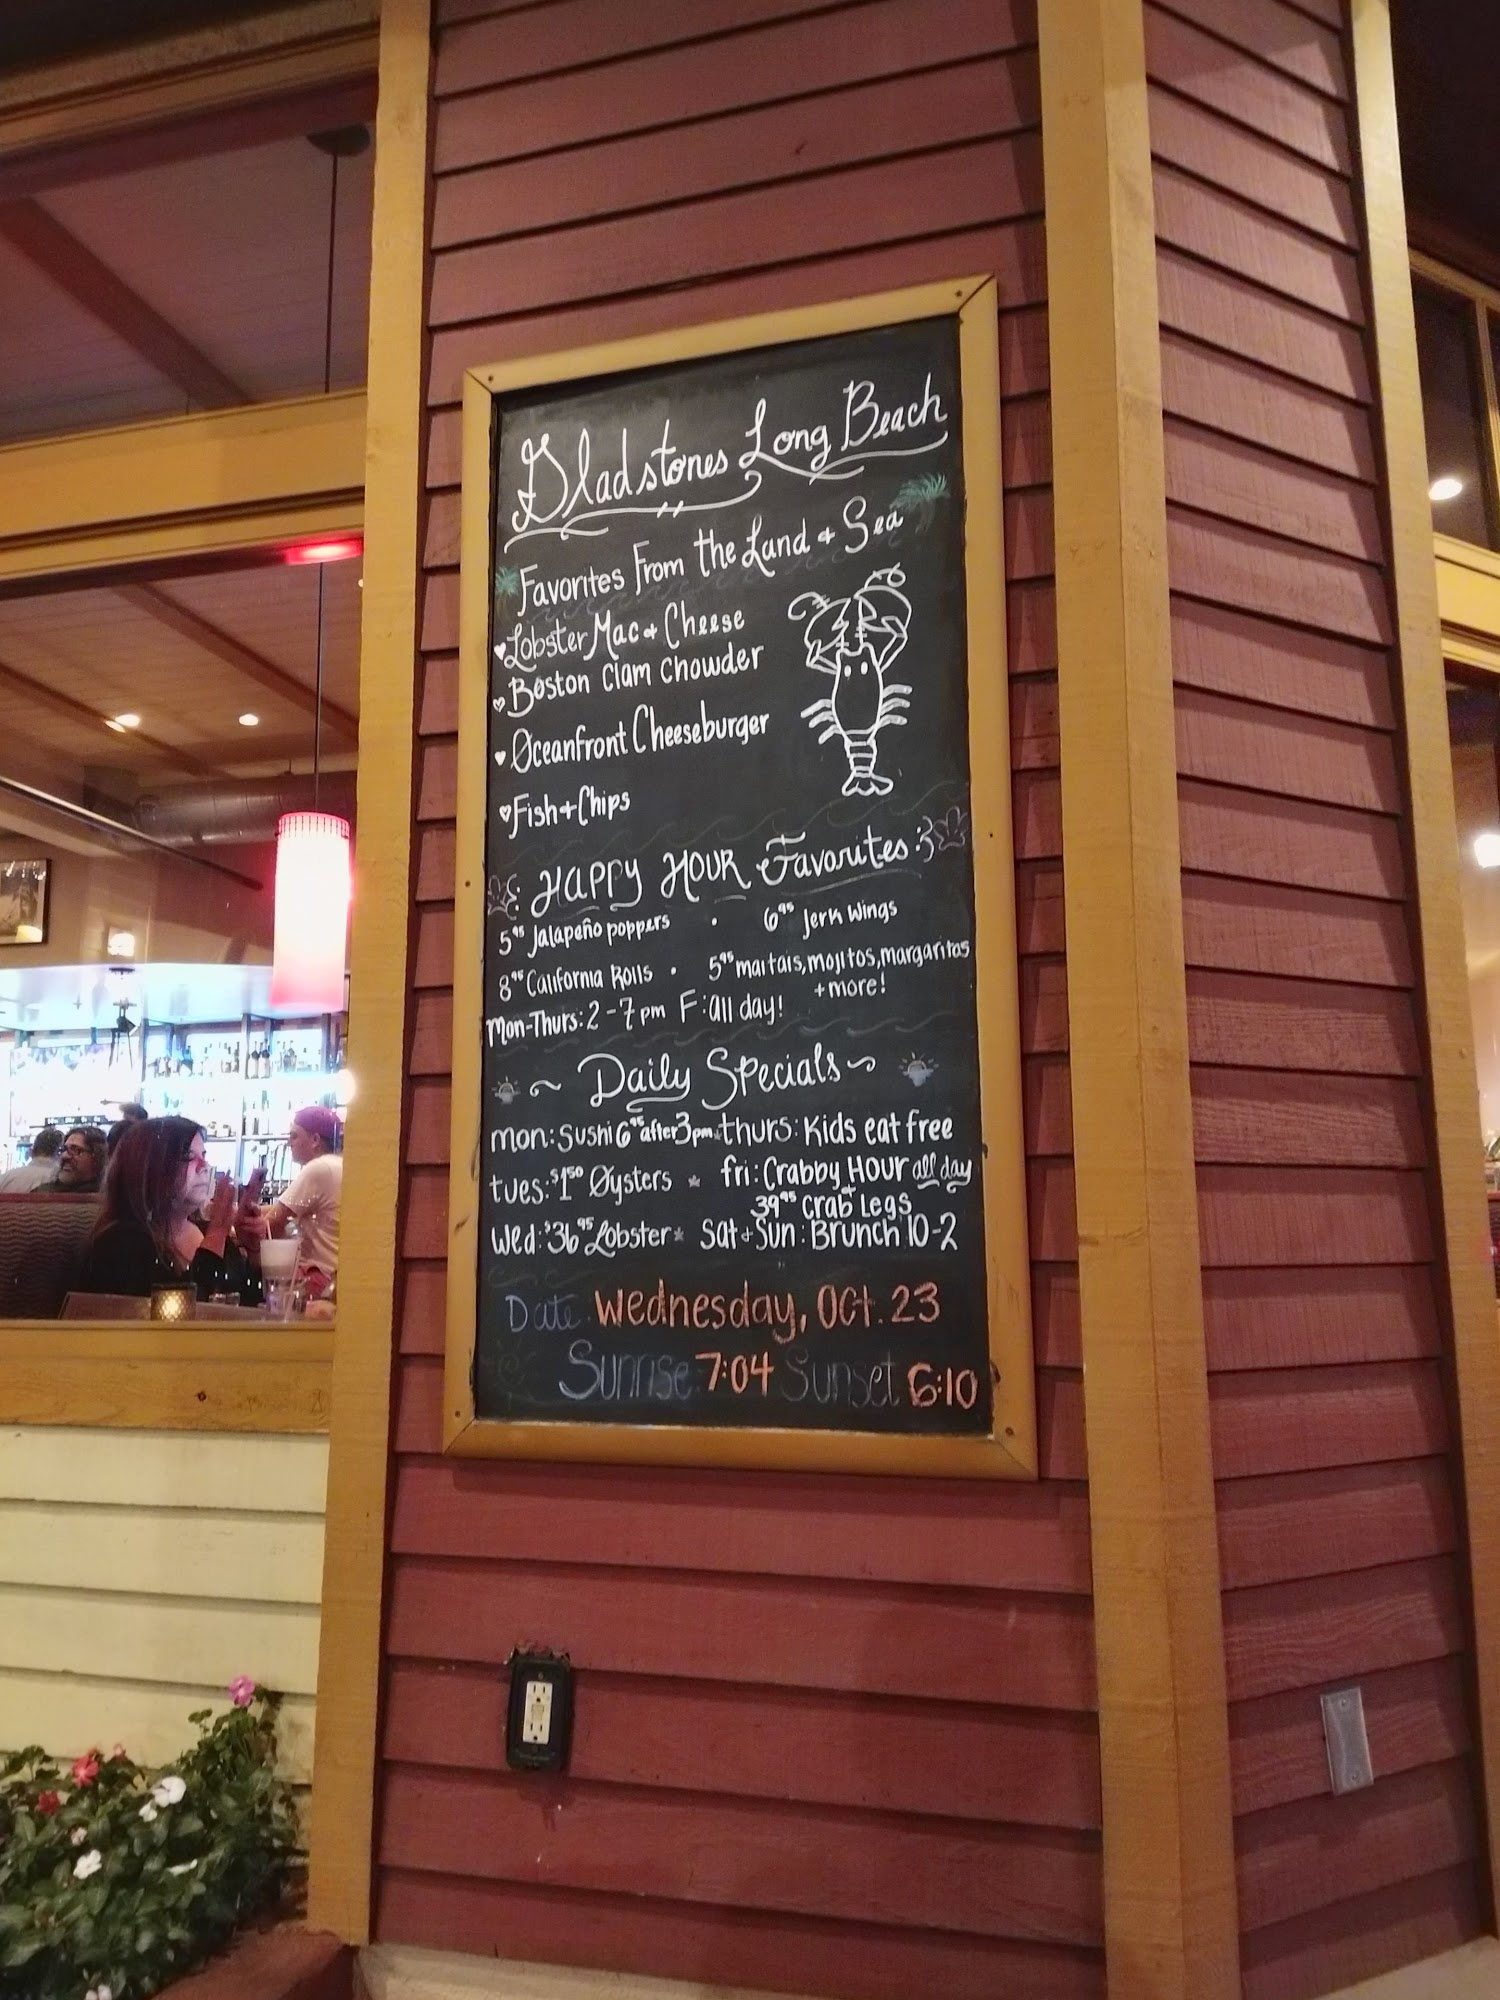 Gladstones Long Beach
Favorites From the Land + Sea
Lobster Mac + Cheese
Boston Clam Chowder
Oceanfront Cheeseburger
Fish + Chips
Happy Hour Favorites
5⁹⁵ Jalapeño poppers · 6⁹⁵ Jerk Wings
8⁹⁵ California Rolls · 5⁹⁵ maitais, mojitos, margaritas
+ more!
Mon-Thurs: 2-7pm F: all day!
~ Daily Specials ~
mon: Sushi 6⁹⁵ after 3pm thurs: Kids eat free
tues: $1⁵⁰ Oysters fri: Crabby Hour all day
39⁹⁵ Crab Legs
wed: $36⁹⁵ Lobster Sat + Sun: Brunch 10-2
Date: Wednesday, Oct. 23
Sunrise 7:04 Sunset 6:10